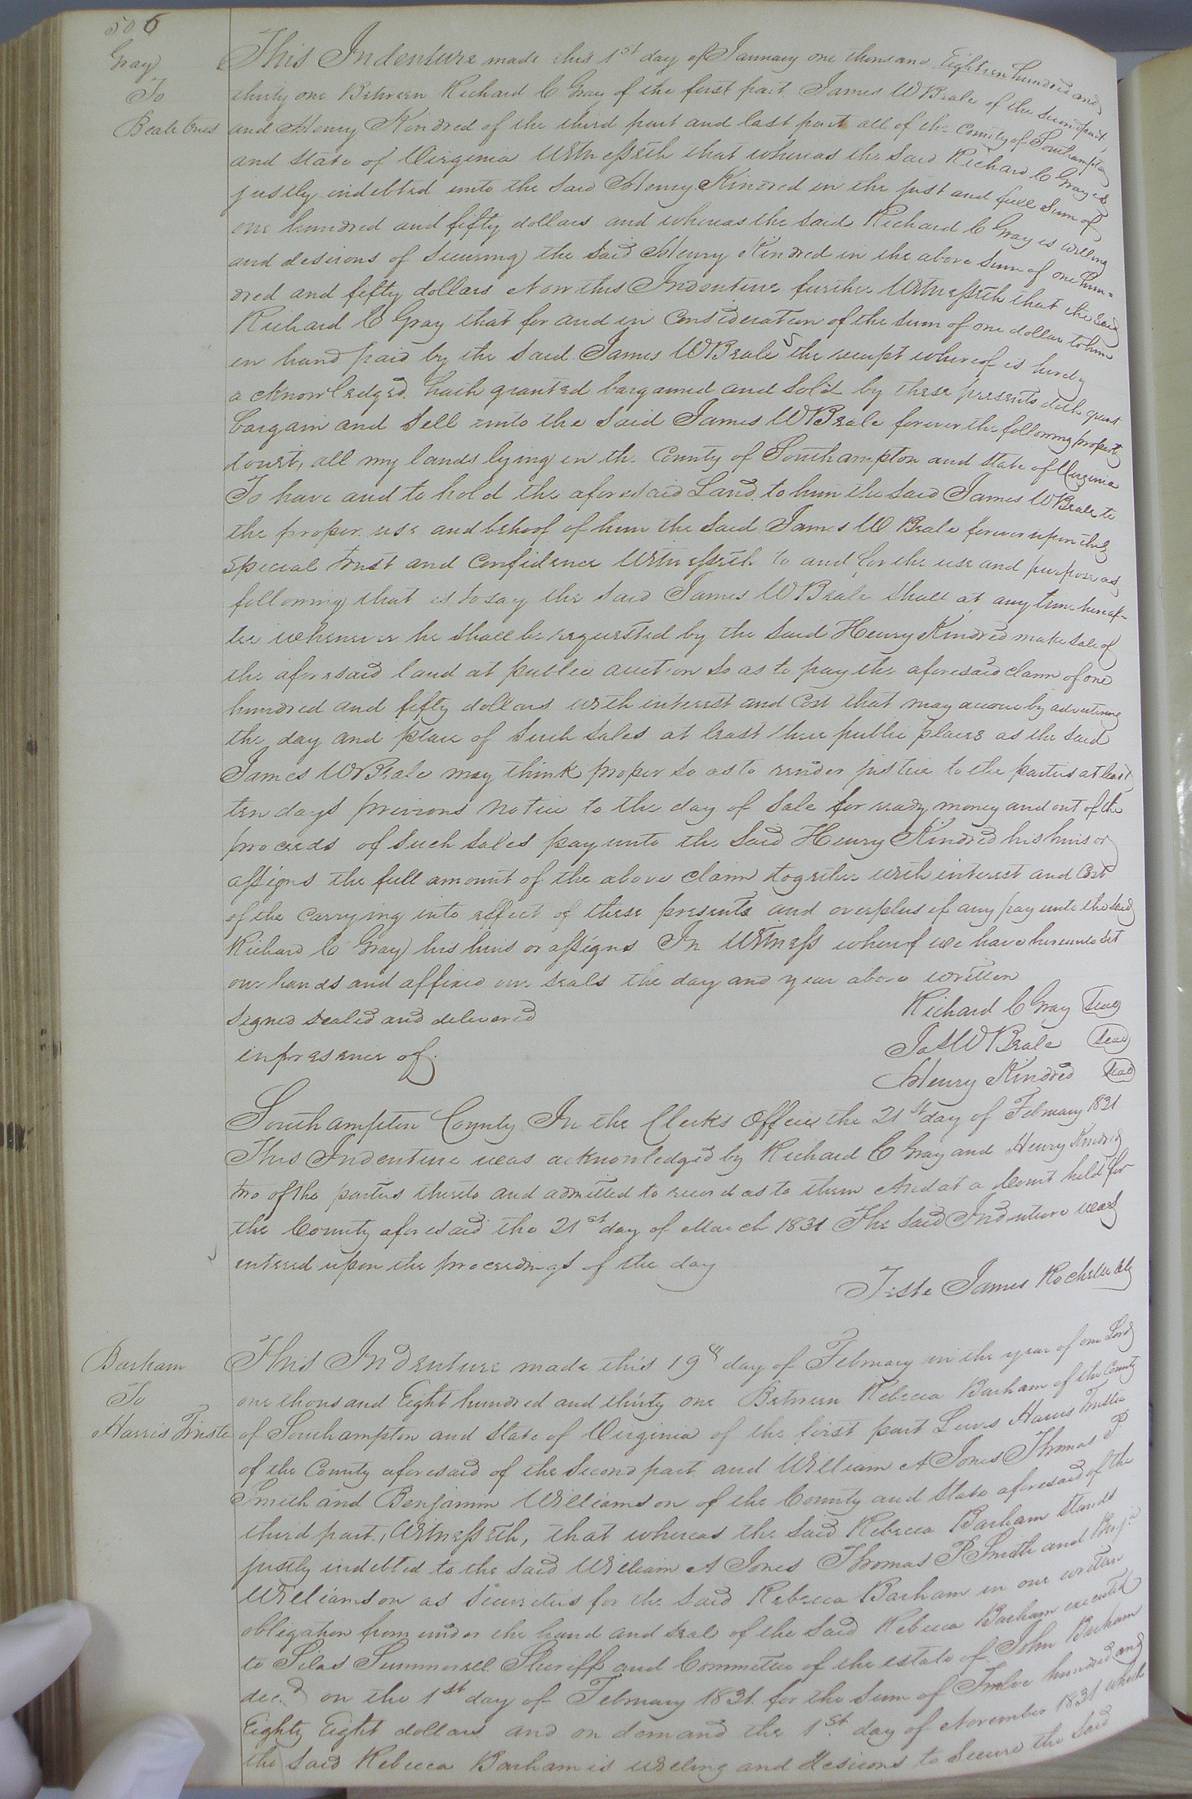 506
Gray
To
Beale Trus
This Indenture made this 1st day of January one thousand Eighteen hundred and
thirty one Between Richard C Gray of the first part James W Beale of the second part
and Henry Kindred of the third part and last part all of the County of Southampton
and state of Virginia Witnesseth that whereas the said Richard C Gray is
justly indebted unto the said Henry Kindred in the just and full sum of
one hundred and fifty dollars and whereas the said Richard C Gray is willing
and desirous of securing the said Henry Kindred in the above sum of one hun-
dred and fifty dollars Now this Indenture further Witnesseth that the said
Richard C Gray that for and in Consideration of the sum of one dollar to him
in hand paid by the said James W Beale the receipt whereof is hereby
acknowledged hath granted bargained and sold by these presents doth grant
bargain and sell unto the said James W Beale forever the following property
towit, all my lands lying in the County of Southampton and state of Virginia
To have and to hold the aforesaid Land to him the said James W Beale to
the proper use and behoof of him the said James W Beale forever upon this
special trust and confidence Witnesseth to and for the use and purpose as
following that is to say the said James W Beale shall at any time hereaf-
ter whenever he shall be requested by the said Henry Kindred make sale of
the aforesaid land at public auction so as to pay the aforesaid claim of one
hundred and fifty dollars with interest and Cost that may accrue by advertising
the day and place of such sales at least three public places as the said
James W Beale may think proper so as to render justice to the parties at least
ten days previous notice to the day of sale for ready money and out of the
proceeds of such sales pay unto the said Henry Kindred his heirs or
assigns the full amount of the above claim together with interest and Cost
of the carrying into effect of these presents and overplus if any pay unto the said
Richard C Gray his heirs or assigns In Witness whereof we have hereunto set
our hands and affixed our seals the day and year above written
Signed sealed and delivered
in presence of
Richard C Gray Seal
Jas W Beale Seal
Henry Kindred Seal
Southampton County In the Clerks Office the 21st day of February 1831
This Indenture was acknowledged by Richard C Gray and Henry Kindred
two of the parties thereto and admitted to record as to them And at a Court held for
the County aforesaid the 21st day of March 1831 The said Indenture was
entered upon the proceedings of the day
Teste James Rochelle Clk
Barham
To
Harris Truste
This Indenture made this 19th day of February in the year of our Lord
one thousand Eight hundred and thirty one Between Rebecca Barham of the County
of Southampton and State of Virginia of the first part Lewis Harris Trustee
of the County aforesaid of the second part and William A Jones Thomas P.
Smith and Benjamin Williamson of the County and State aforesaid of the
third part, Witnesseth, that whereas the said Rebecca Barham stands
justly indebted to the said William A Jones Thomas P Smith and Benj.
Williamson as Securities for the said Rebecca Barham in one written
obligation from under the hand and seal of the said Rebecca Barham executed
to Silas Summerell Sheriff and Committee of the estate of John Barham
decd on the 1st day of February 1831 for the sum of Twelve hundred and
Eighty Eight dollars and on demand the 1st day of November 1831 whereas
the said Rebecca Barham is willing and desirous to Secure the said